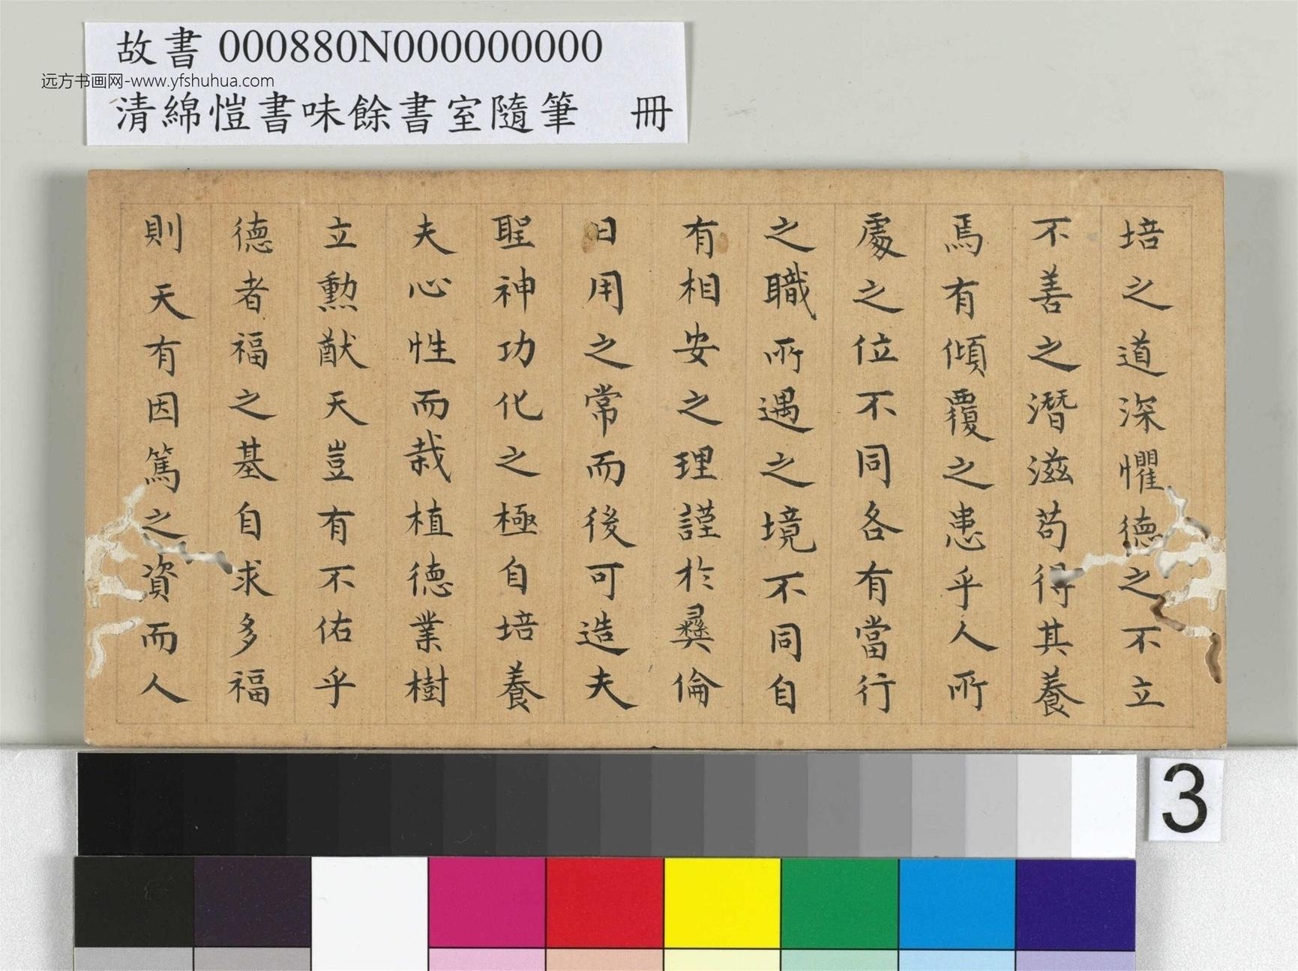 故書 000880N000000000
远方书画网-www.yfshuhua.com
清綿愷書味餘書室隨筆 冊
培之道深懼德之不立
不善之潛滋苟得其養
焉有傾覆之患乎人所
處之位不同各有當行
之職所遇之境不同自
有相安之理謹於彝倫
日用之常而後可造夫
聖神功化之極自培養
夫心性而栽植德業樹
立勲猷天豈有不佑乎
德者福之基自求多福
則天有因篤之資而人
3